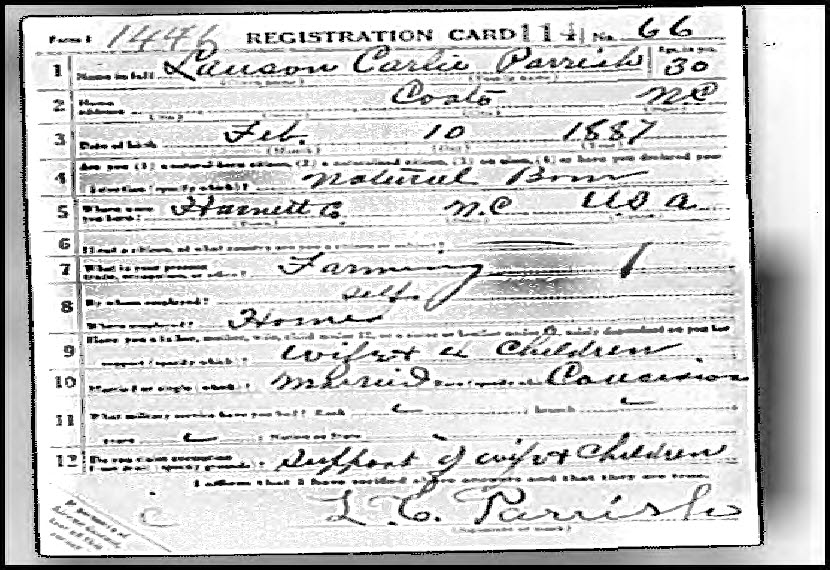 Form 1 1446 REGISTRATION CARD 114 No. 66
1 Name in full Lauson Carlie Parrish Age, in yrs. 30
2 Home address Coats N.C
3 Date of birth Feb. 10 1887
Are you (1) a natural born citizen, (2) a naturalized citizen, (3) an alien, (4) or have you declared your
4 intention (specify which)? Natural Born
5 Where were you born? Harnett Co. N.C U S A
6 If not a citizen, of what country are you a citizen or subject?
7 What is your present trade, occupation, or office? Farming
8 By whom employed? self
Where employed? Home
9 Have you a father, mother, wife, child under 12, or a sister or brother under 12, solely dependent on you for
support (specify which)? Wife & 4 Children
10 Married or single (which)? Married Race (specify which)? Caucasion
11 What military service have you had? Rank branch
years Nation or State
12 Do you claim exemption from draft (specify grounds)? Support of wife & Children
I affirm that I have verified above answers and that they are true.
L. C. Parrish
(Signature or mark)